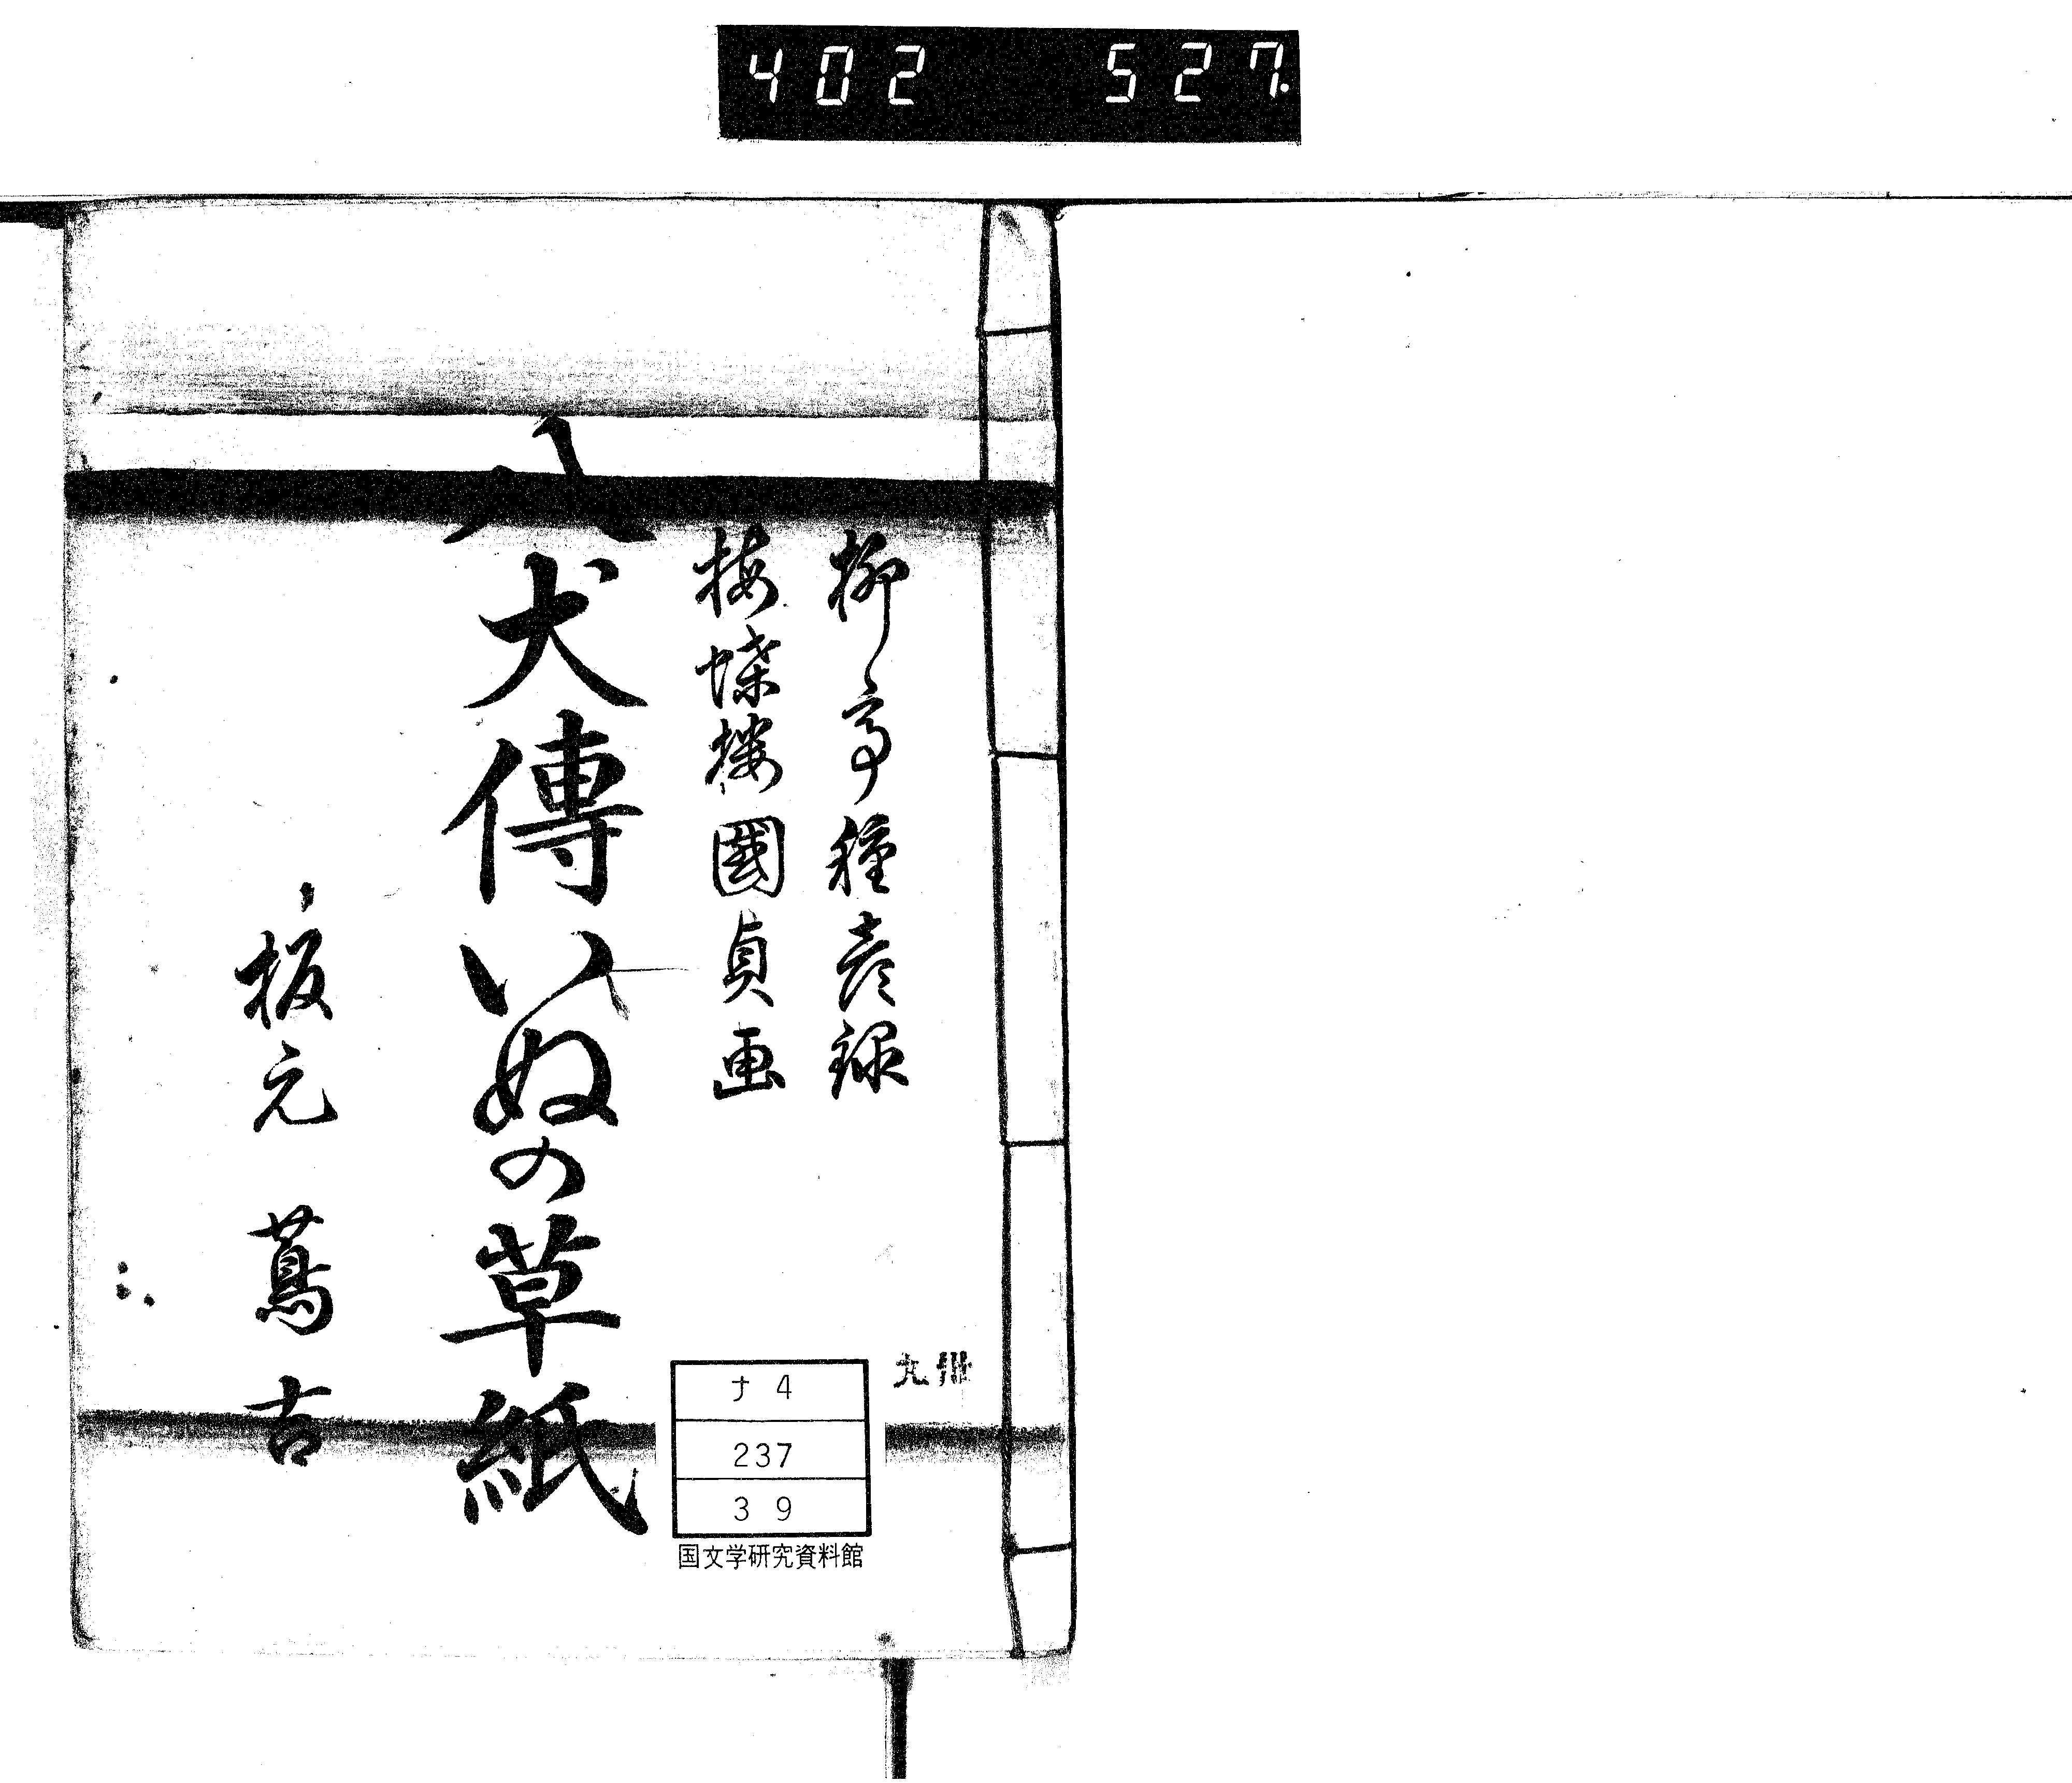 402 527.
柳亭種彦録
梅蝶楼國貞画
八犬傳いぬの草紙
板元 蔦吉
九冊
ナ4
237
39
国文学研究資料館